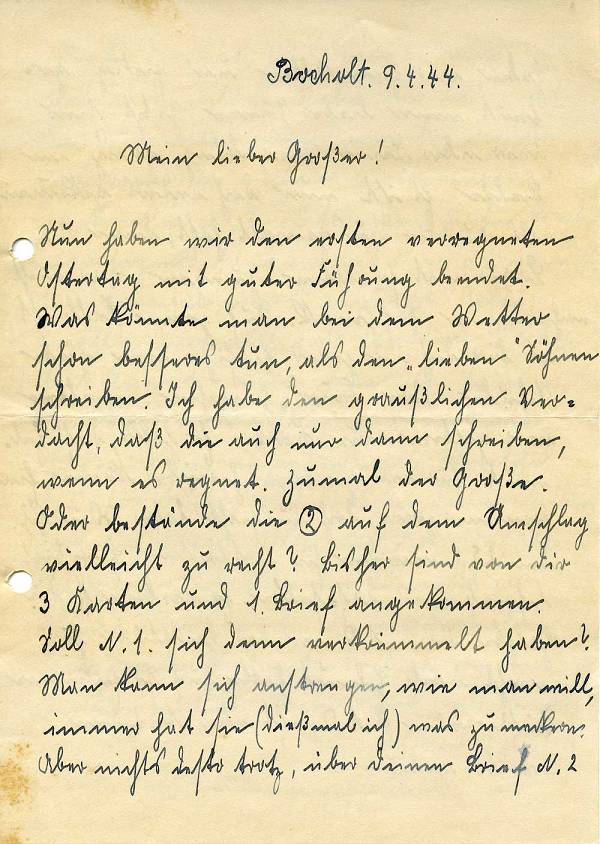 Bocholt. 9.4.44.
Mein lieber Großer!
Nun haben wir den ersten verregneten
Ostertag mit guter Führung beendet.
Was könnte man bei dem Wetter
schon besseres tun, als den „lieben" Söhnen
schreiben. Ich habe den graußlichen Ver=
dacht, daß die auch nur dann schreiben,
wenn es regnet. Zumal der Große.
Oder bestände die ② auf dem Umschlag
vielleicht zu recht? Bisher sind von dir
3 Karten und 1. Brief angekommen.
Soll N. 1. sich denn verkrümmelt haben?
Man kann sich anstrengen, wie man will,
immer hat sie (dießmal ich) was zu meckern.
Aber nichts desto trotz, über deinen Brief N. 2